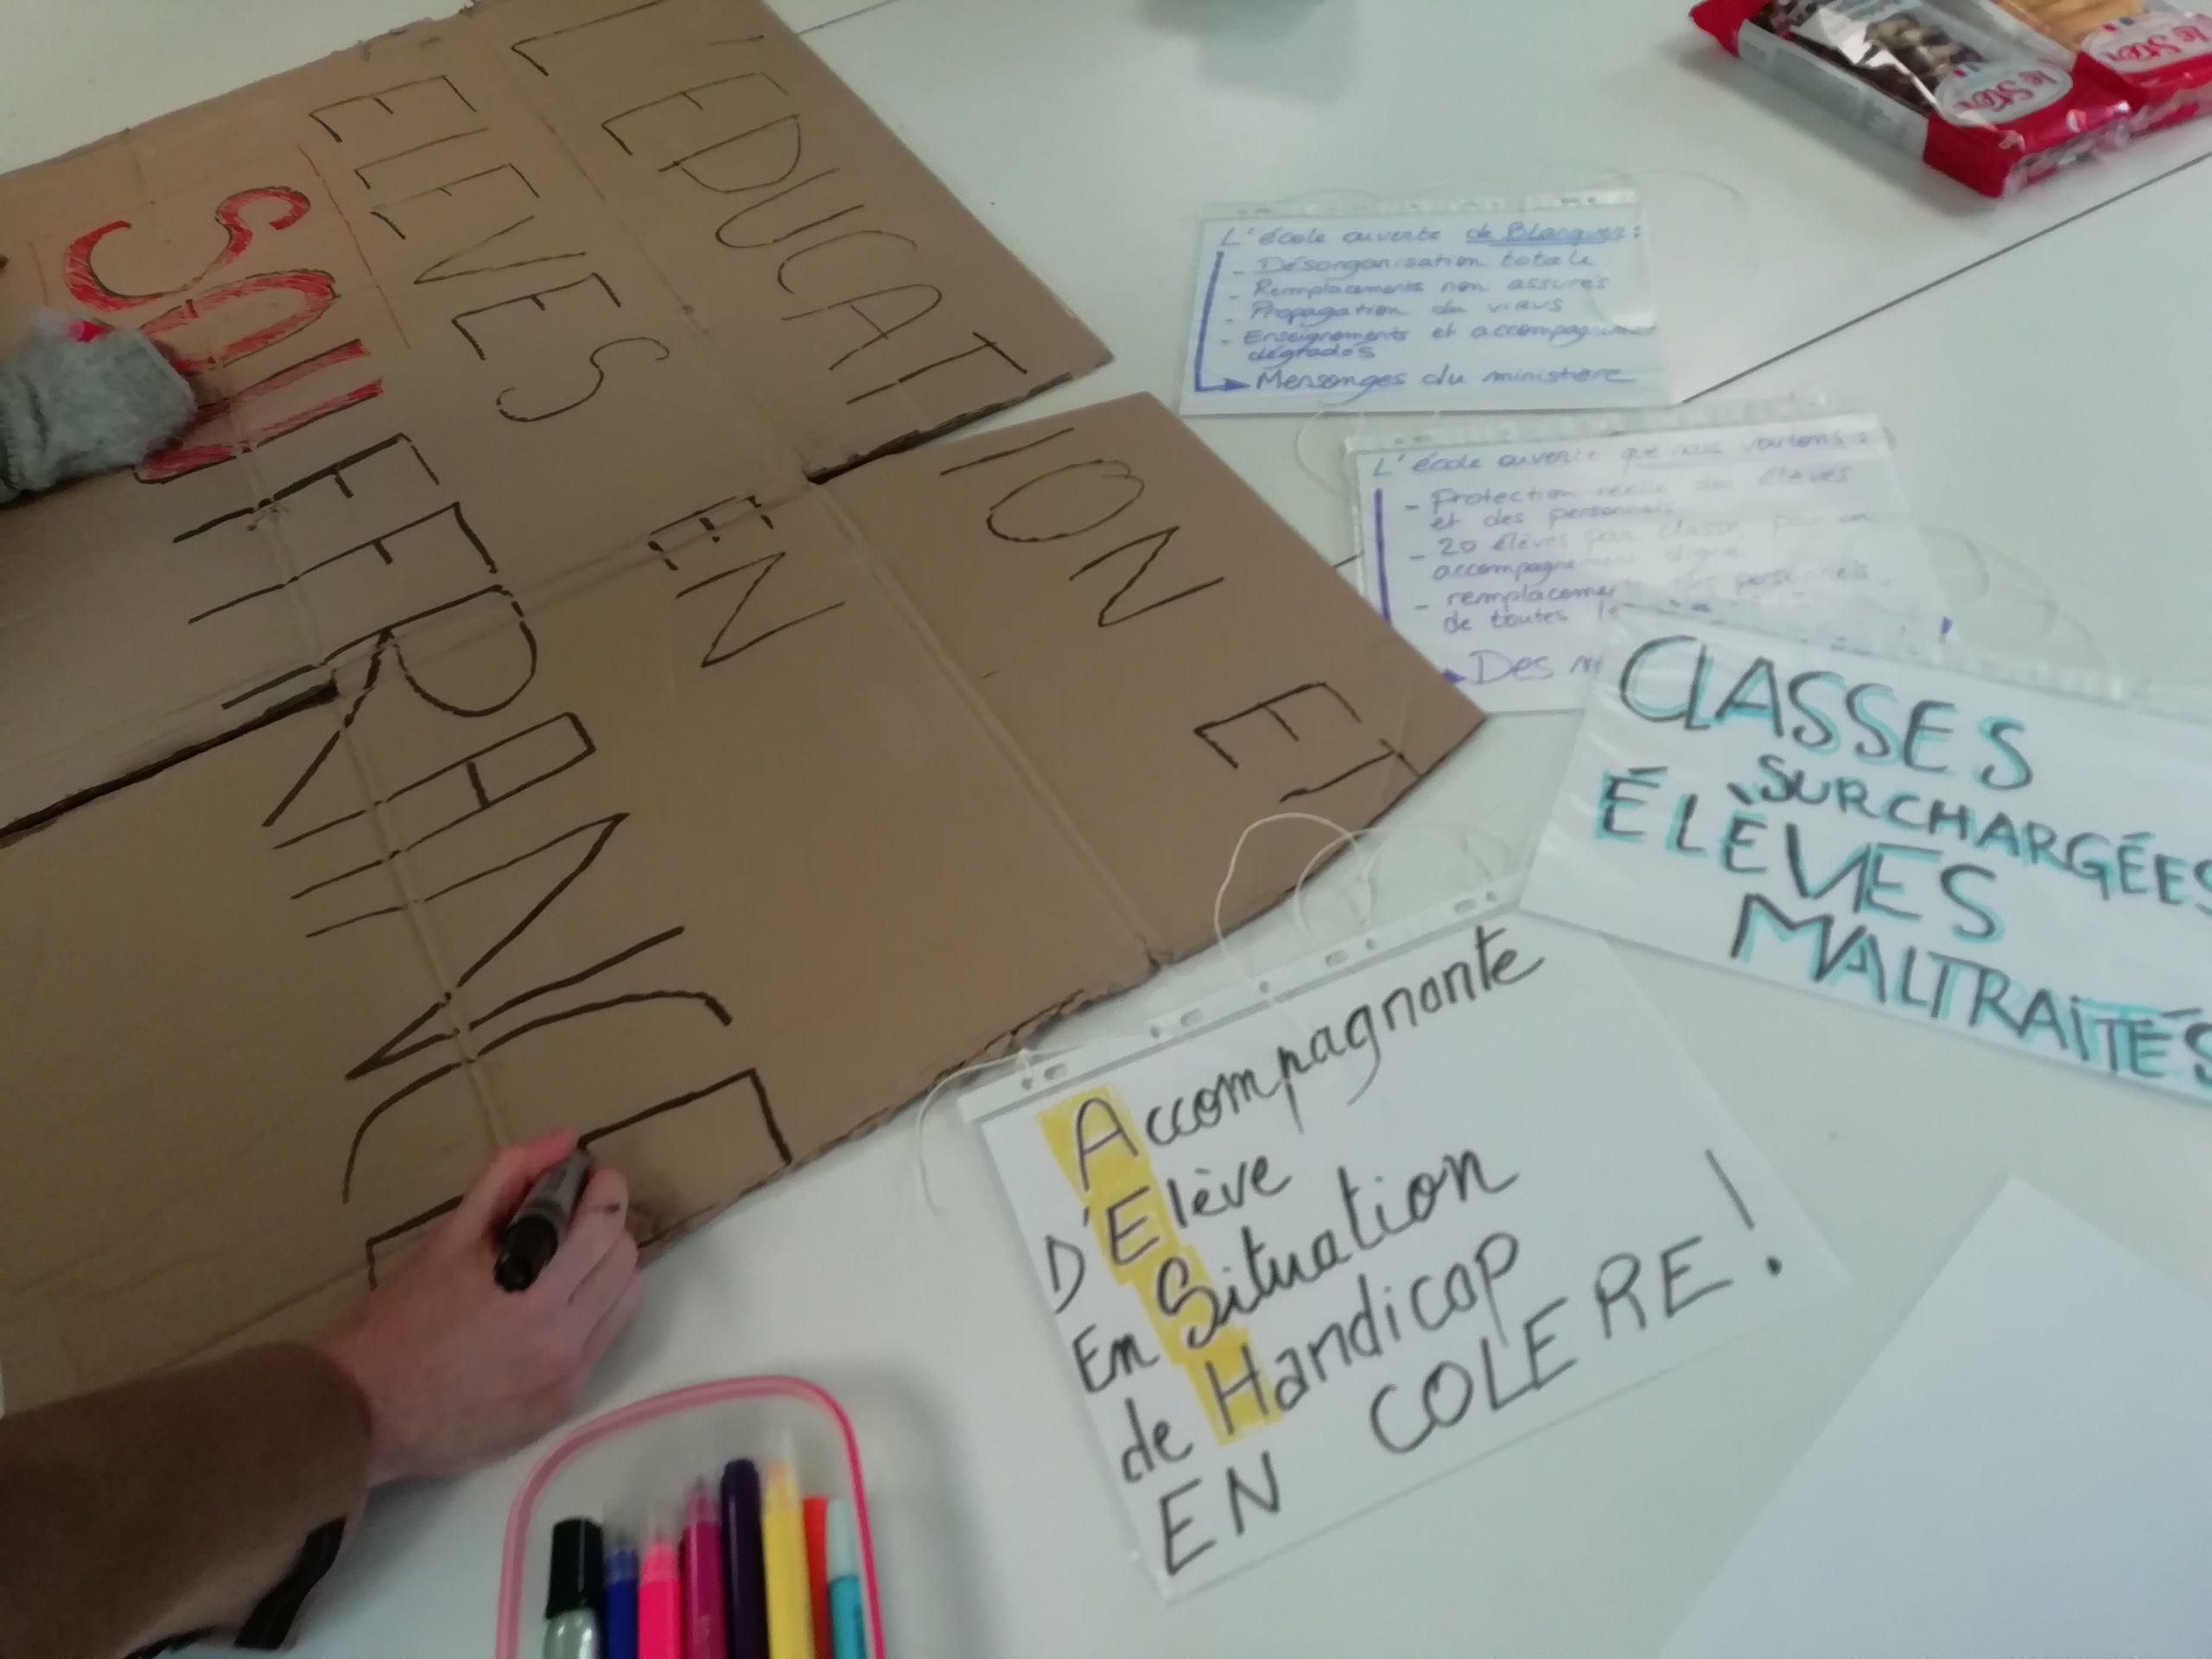 L'EDUCATION ET
ELEVES EN
SOUFFRANCE
L'école ouverte de Blanquer :
- Désorganisation totale
- Remplacements non assurés
- Propagation du virus
- Enseignements et accompagnement
dégradés
Mensonges du ministère
L'école ouverte que nous voulons :
- Protection réelle des élèves
et des personnels
- 20 élèves par classe, pour un
accompagnement digne
- remplacement des personnels
de toutes
Des
CLASSES
SURCHARGÉES
ÉLÈVES
MALTRAITÉS
Accompagnante
D'Elève
En Situation
de Handicap
EN COLERE !
le Ster
le Ster